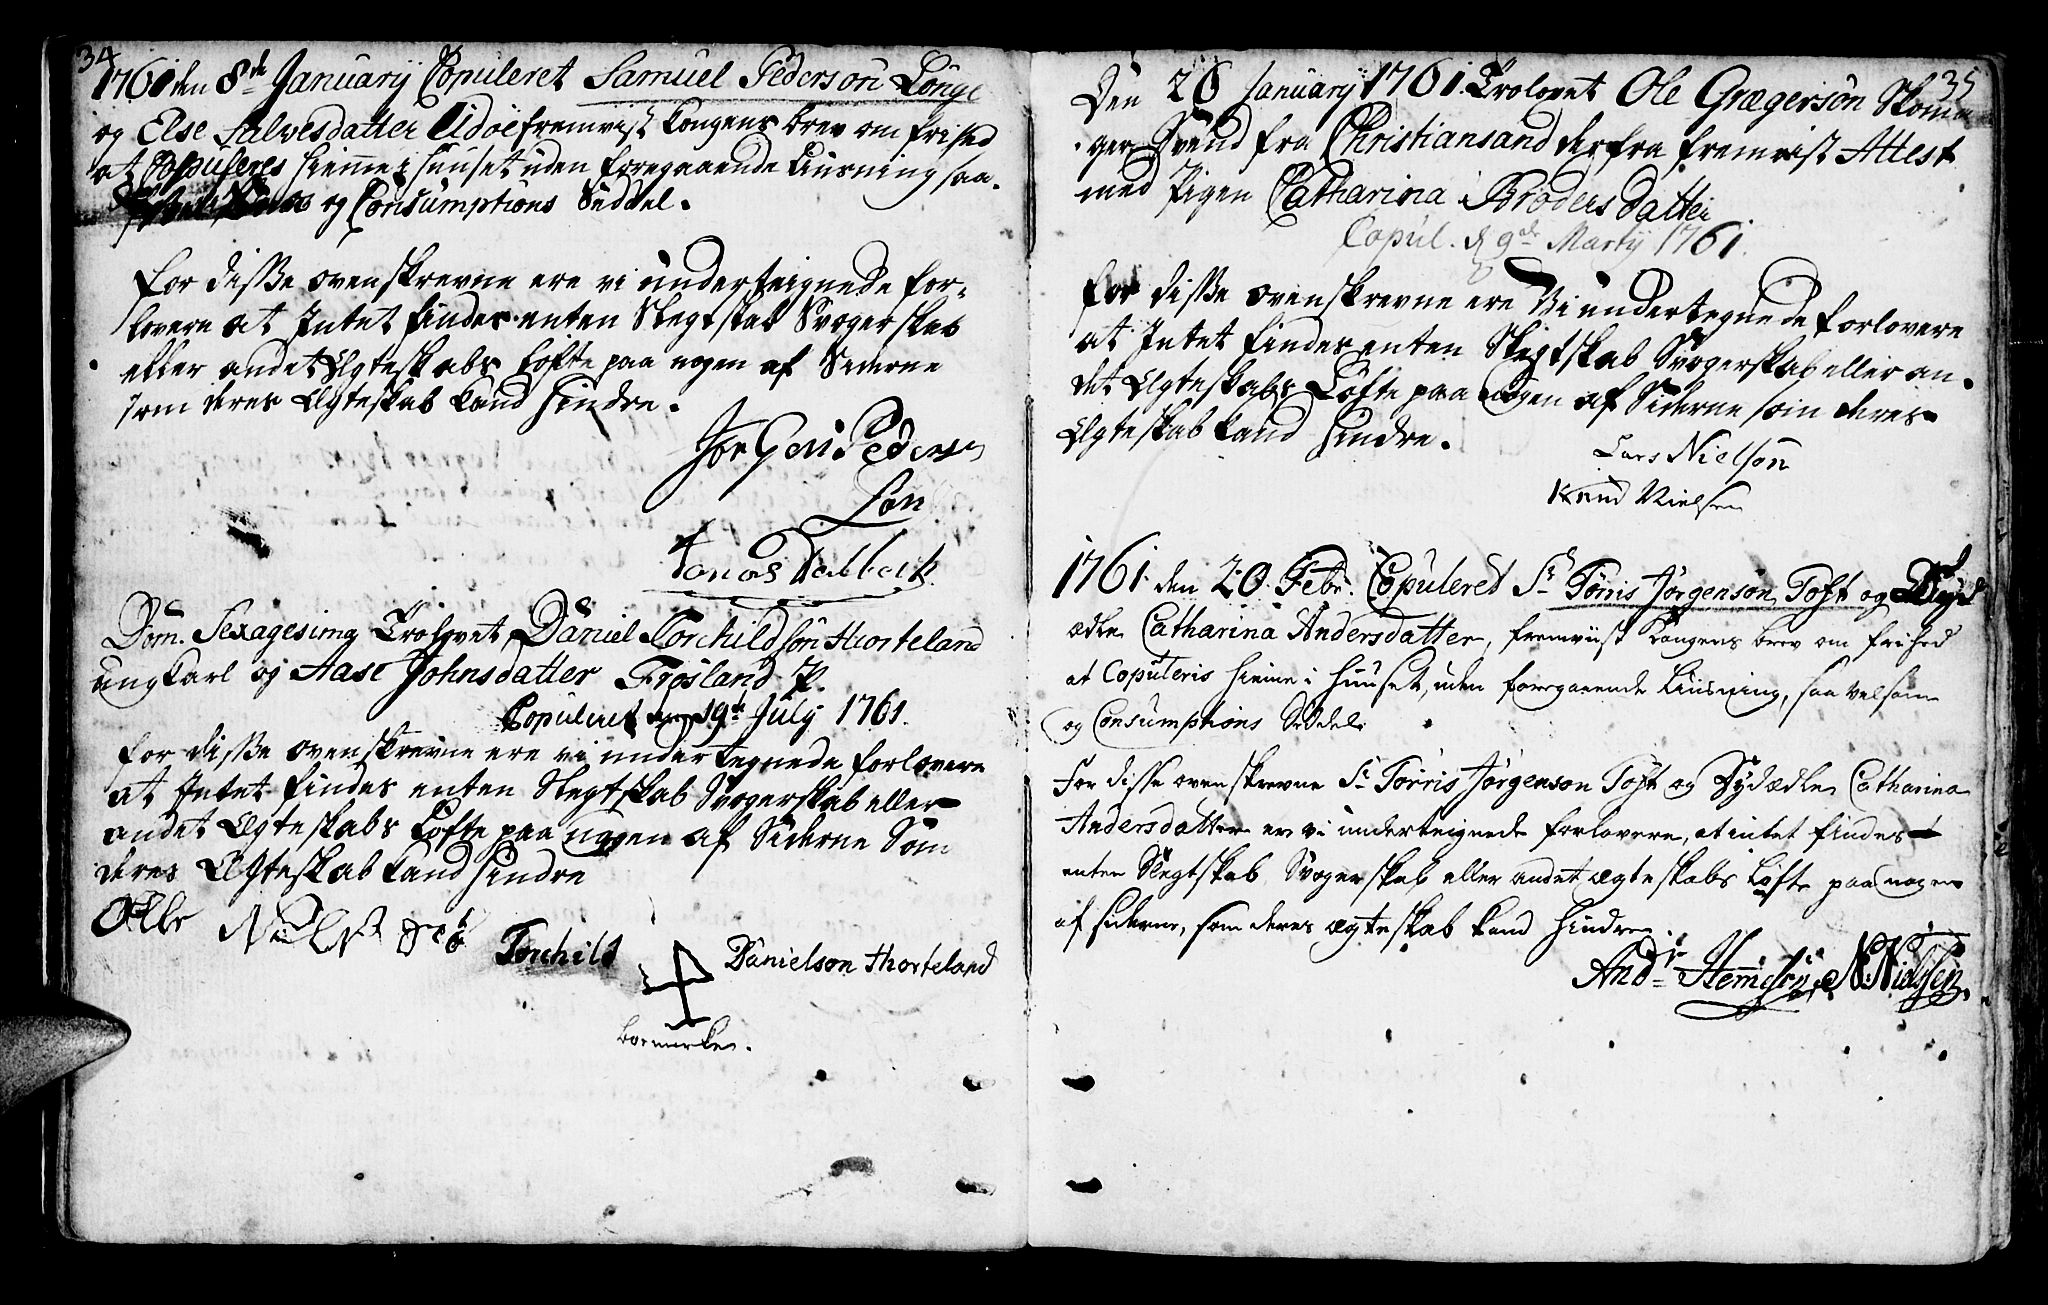 34
1761 den 8de January Copuleret Samuel Pedersön Longe
og Else Salvesdatter Udöe fremvist Kongens brev om frihed
at Copuleres hieme i Huuset uden foregaaende Liusning saa-
og Consumptions Seddel.
for disse ovenskrevne ere vi underteignede for-
lovere at Intet findes enten Slegtskab Svogerskab
eller andet Ægteskabs Löfte paa nogen af Siderne
som deres Ægteskab kand hindre.
Jörgen Peders
Sön
Jonas
Dom. Sexagesima Trolovet Daniel Torchildsön Hiorteland
ungkarl og Aase Johnsdatter Frösland P.
Copuleret den 19de July 1761.
for disse ovenskrevne ere vi undertegnede forlovere
at Intet findes enten Slegtskab Svogerskab eller
andet Ægteskabs Löfte paa nogen af Siderne Som
deres Ægteskab kand hindre
Olle
Torchild Danielson Hiorteland
boemerke.
35
Den 26 January 1761. Trolovet Ole Grægersön Skoma
ger Svend fra Christiansand derfra fremvist Attest
med Pigen Catharina Brodersdatter
Copul. d 9de Martij 1761.
for disse ovenskrevne ere Vi undertegnede forlovere
at Intet findes enten Slegtskab Svogerskab eller an-
det Ægteskabs Löfte paa nogen af Siderne som deres
Ægteskab kand hindre.
Lars Nielsön
Knud Nielsen
1761. den 20. Febr. Copuleret Sr. Törris Jörgensön Toft og Dyd
ædle Catharina Andersdatter, fremviist Kongens brev om frihed
at Copuleris hieme i Huuset, uden foregaaende Liusning, saa velsom
og Consumptions Seddel.
For disse ovenskrevne Sr. Törris Jörgenson Toft og Dydædle Catharina
Andersdatter er vi underteignede forlovere, at intet findes
enten Slegtskab Svogerskab eller andet ægteskabs Löfte paa nogen
af siderne, som deres ægteskab kand hindre.
Andr. N: Nielsen